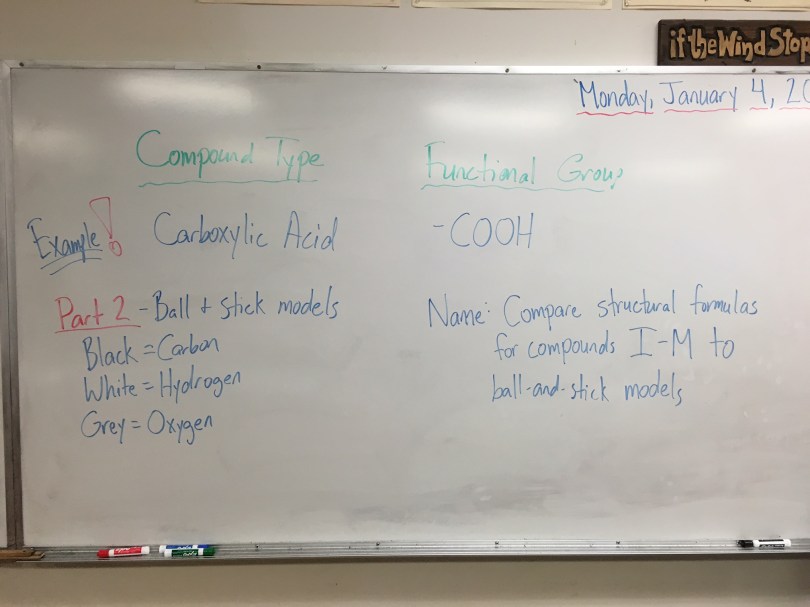 if the Wind Stop
Monday, January 4, 20
Compound Type
Functional Group
Example!
Carboxylic Acid
-COOH
Part 2 - Ball + stick models
Black = Carbon
White = Hydrogen
Grey = Oxygen
Name: Compare structural formulas
for compounds I-M to
ball-and-stick models